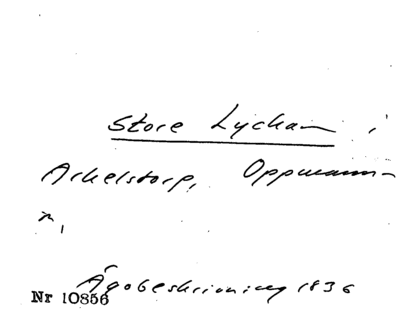 Store Lyckan i
Arkelstorp, Oppmann-
a,
Ägobeskrivning 1836
Nr 10856